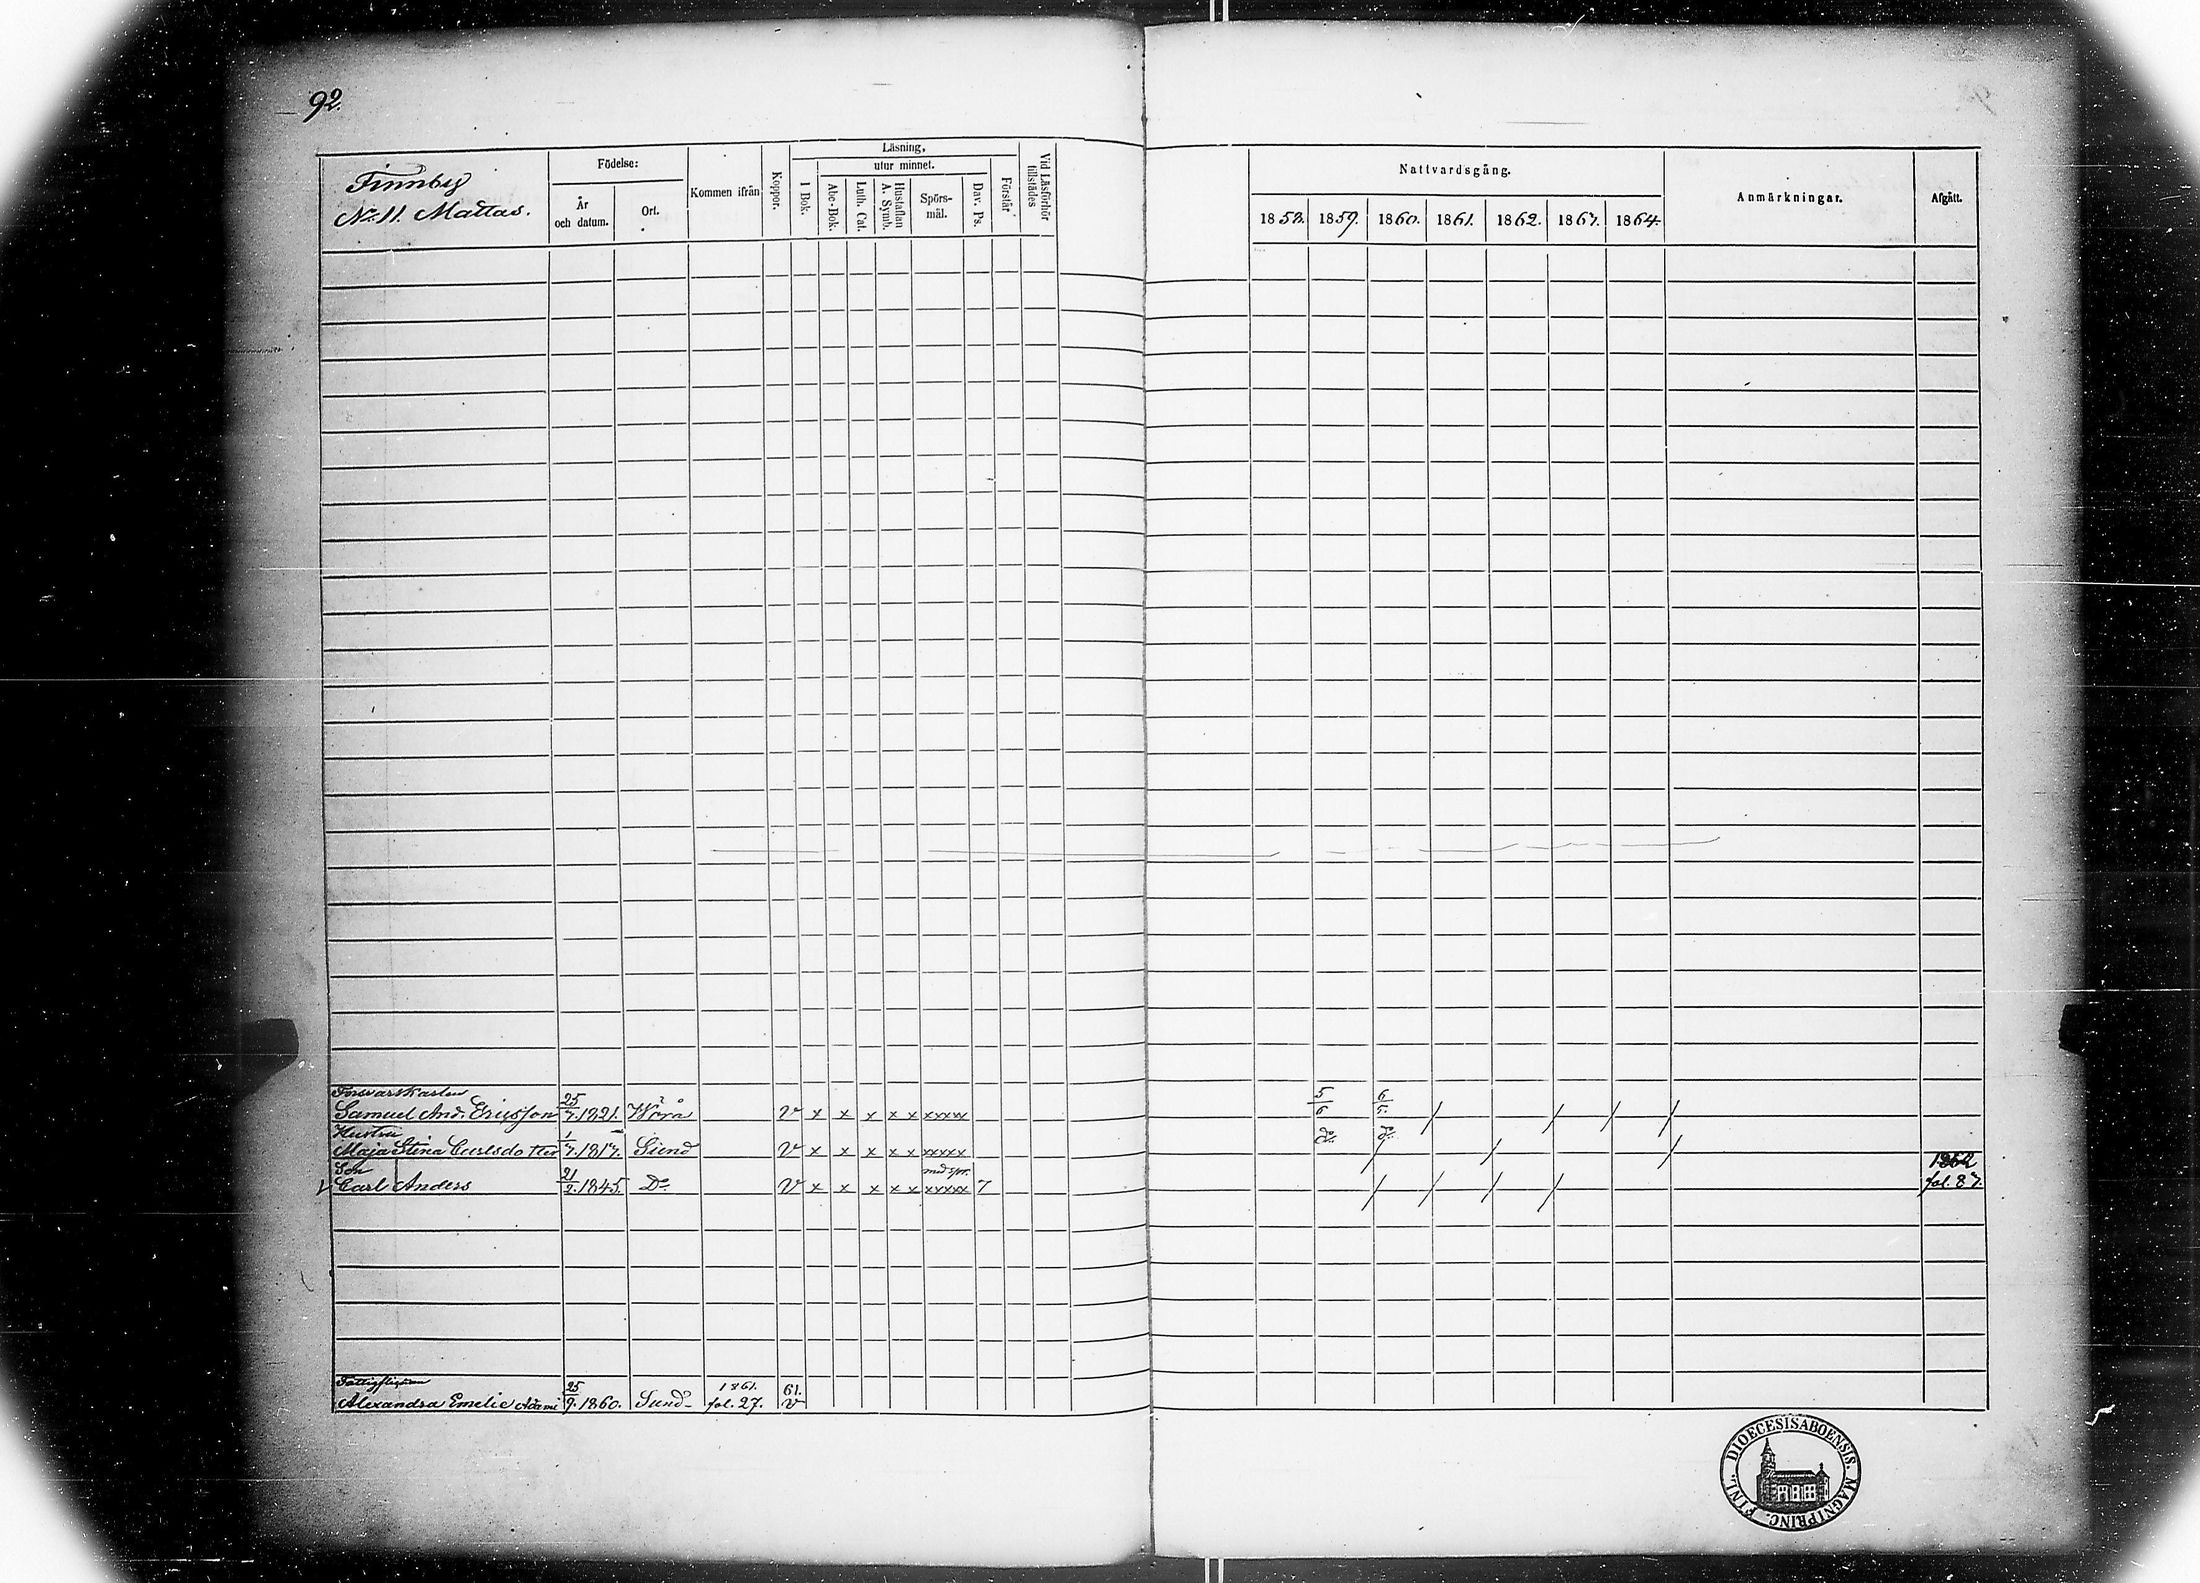 92.
Finnby
No 11. Mattas.
Födelse:
År och datum.
Ort.
Kommen ifrån
Koppor.
Läsning,
I Bok.
utur minnet.
Abc-Bok.
Luth. Cat.
Hustaflan A. Symb.
Spörs-mål.
Dav. Ps.
Förstår
Vid Läsförhör tillstädes
Nattvardsgång.
1858. 1859. 1860. 1861. 1862. 1863. 1864.
Anmärkningar.
Afgått.
Försvarskarlen
Samuel And. Ericsson 25/7. 1821. Wörå v x x x x x xxxxx 5/6 6/5. / / / /
Hustru
Maja Stina Carlsdotter 1/7. 1817. Sund v x x x x x xxxxx do. do. / / /
Son
Carl Anders 21/2. 1845. Do v x x x x x med spr. xxxxx 7 / / / / 1862 fol. 87.
Alexandra Emelie 25/9. 1860. Sund 1861. fol. 27. 61. v
FINL. DIOECESIS ABOENSIS. MAGNI PRINC.